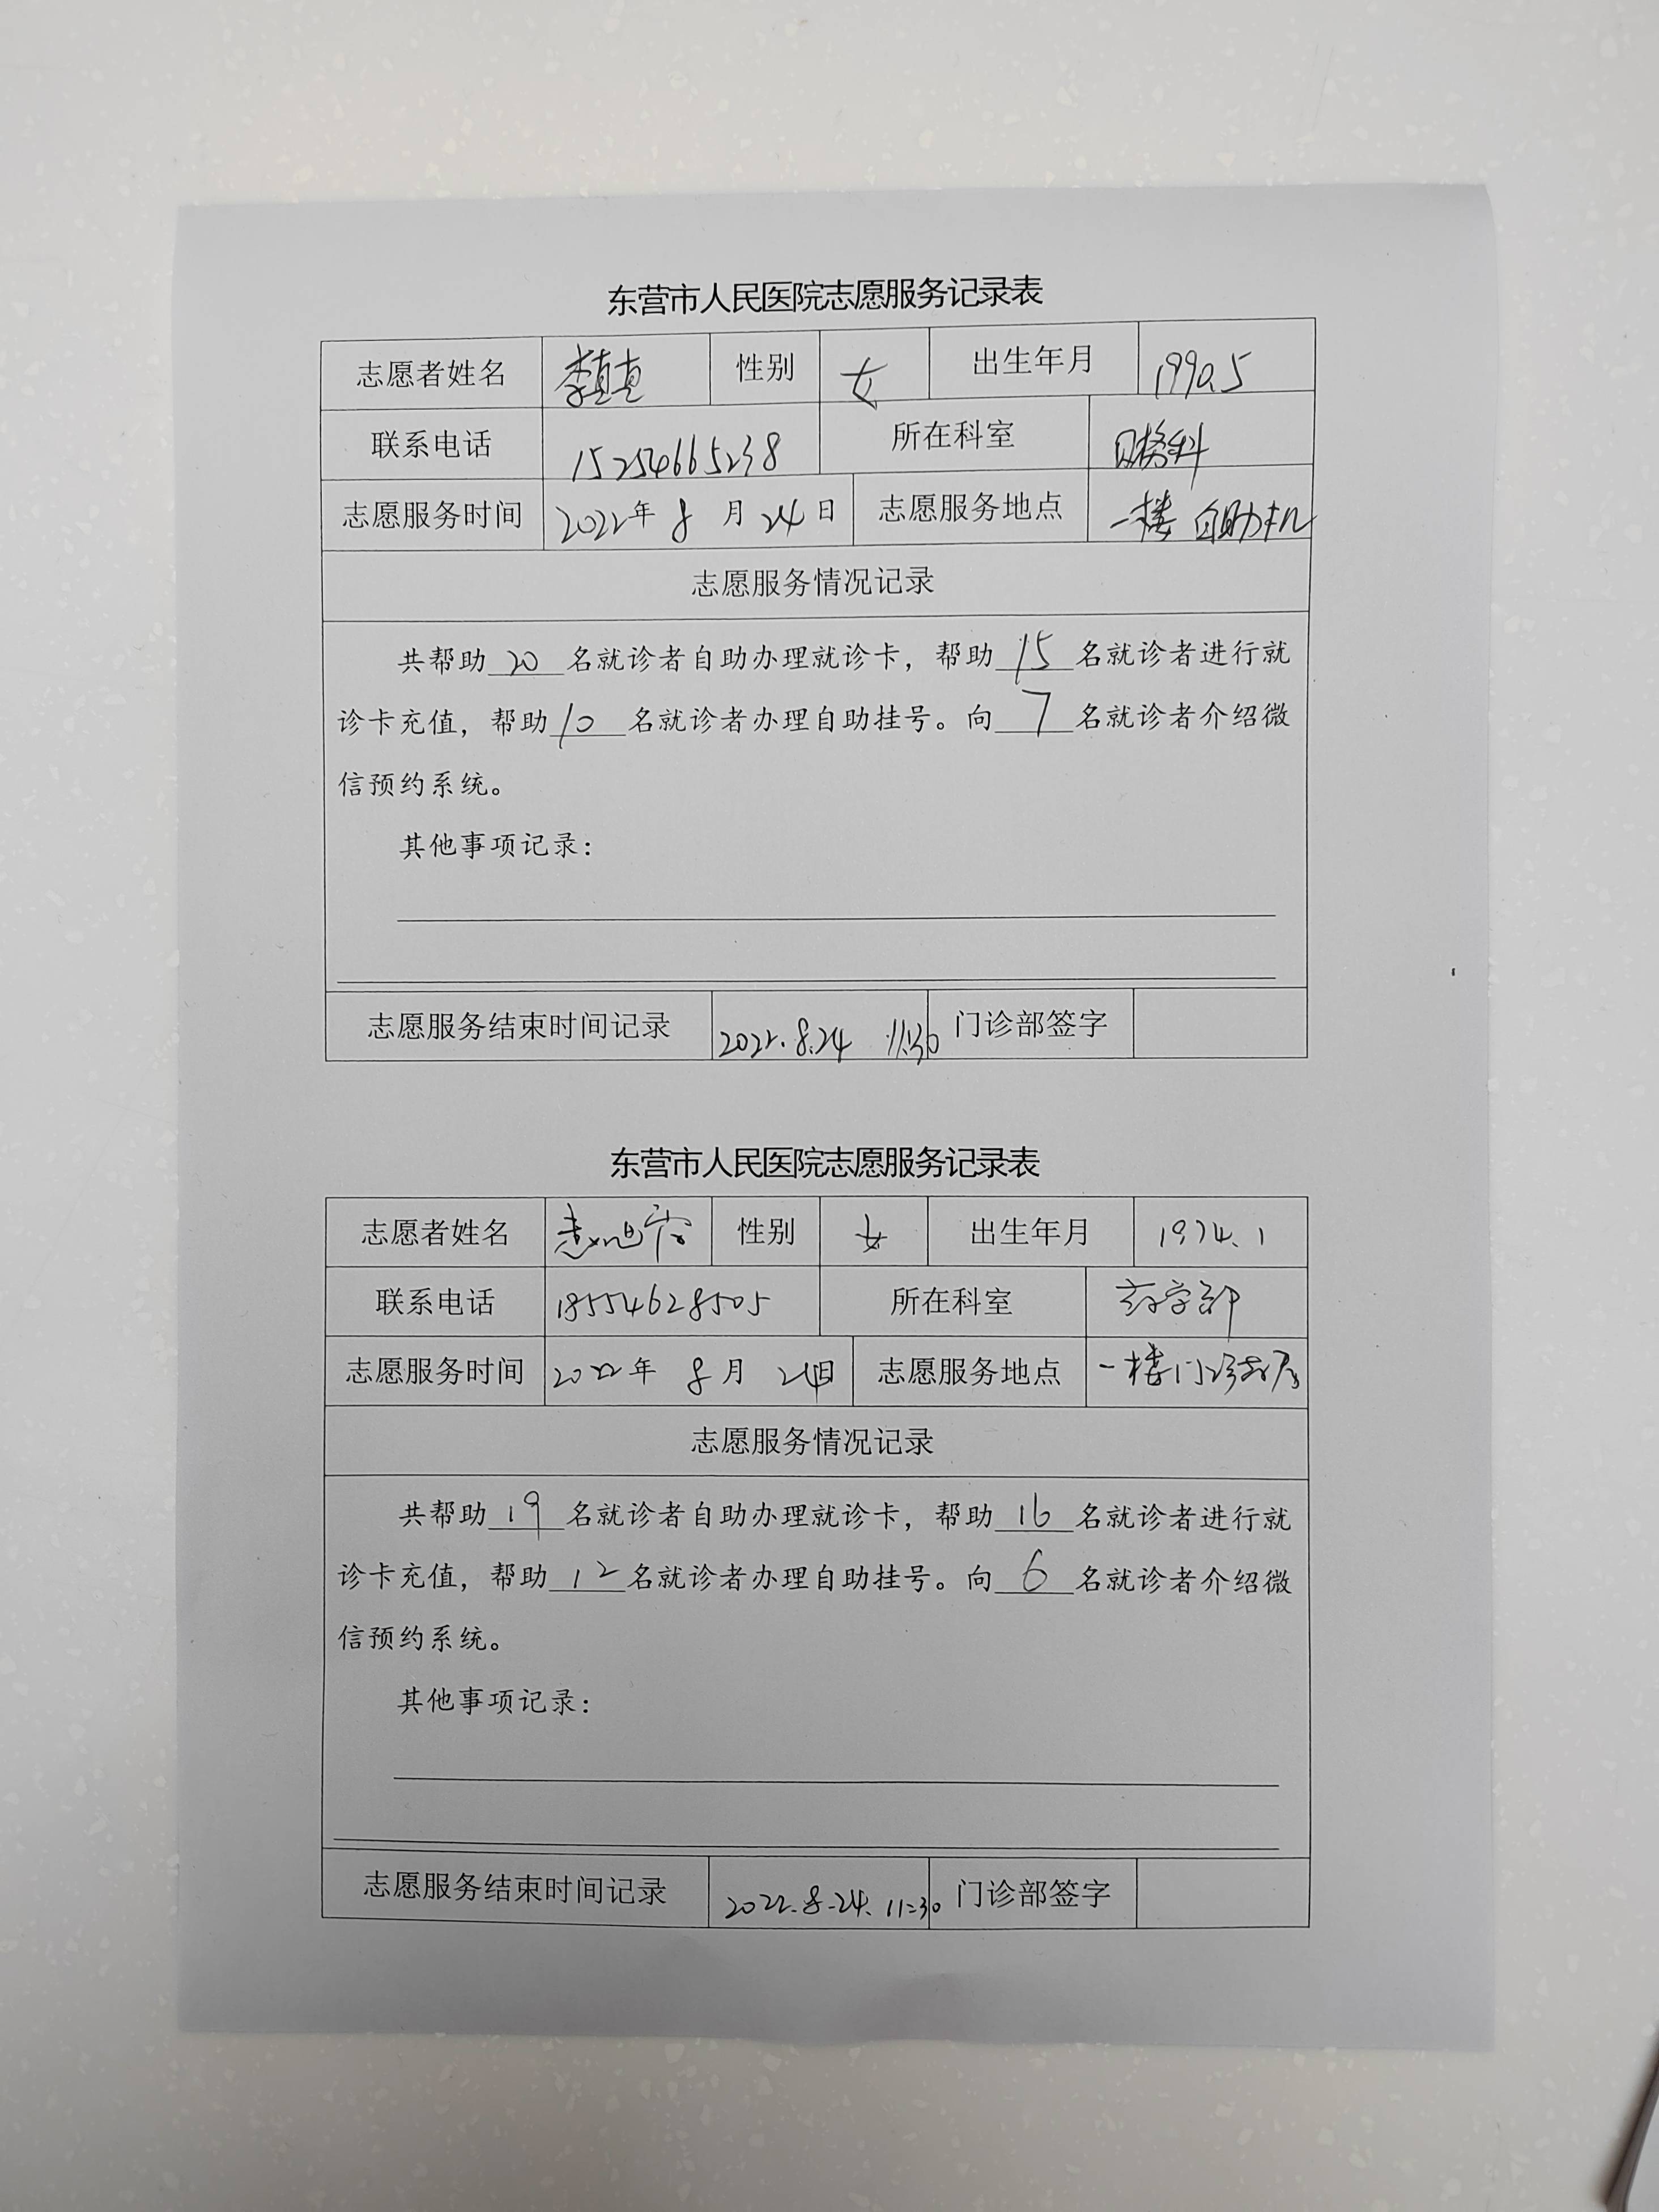 东营市人民医院志愿服务记录表
志愿者姓名 李真真 性别 女 出生年月 1990.5
联系电话 15254665238 所在科室 财务科
志愿服务时间 2022年 8 月 24日 志愿服务地点 一楼 自助机
志愿服务情况记录
共帮助 20 名就诊者自助办理就诊卡，帮助 15 名就诊者进行就
诊卡充值，帮助 10 名就诊者办理自助挂号。向 7 名就诊者介绍微
信预约系统。
其他事项记录：
志愿服务结束时间记录 2022.8.24 11:30 门诊部签字
东营市人民医院志愿服务记录表
志愿者姓名 性别 女 出生年月 1974.1
联系电话 18554628505 所在科室 药学部
志愿服务时间 2022年 8月 24日 志愿服务地点 一楼门诊药房
志愿服务情况记录
共帮助 19 名就诊者自助办理就诊卡，帮助 16 名就诊者进行就
诊卡充值，帮助 12 名就诊者办理自助挂号。向 6 名就诊者介绍微
信预约系统。
其他事项记录：
志愿服务结束时间记录 2022.8.24. 11:30 门诊部签字